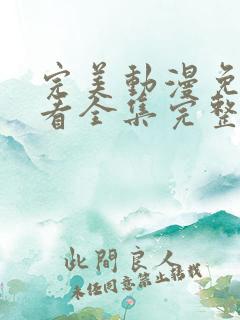 完美動漫免
看全集完整
此間良人
未经同意禁止搭载